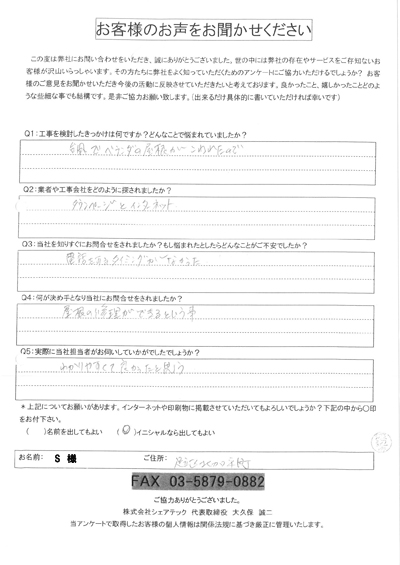 お客様のお声をお聞かせください
この度は弊社にお問い合わせをいただき、誠にありがとうございました。世の中には弊社の存在やサービスをご存知ないお
客様が沢山いらっしゃいます。その方たちに弊社をよく知っていただくためのアンケートにご協力いただけるでしょうか？ お客
様のご意見をお聞かせいただき今後の活動に反映させていただきたいと考えております。良かったこと、嬉しかったことどのよ
うな些細な事でも結構です。是非ご協力お願い致します。（出来るだけ具体的に書いていただければ幸いです）
Q1：工事を検討したきっかけは何ですか？どんなことで悩まれていましたか？
台風でベランダの屋根が
Q2：業者や工事会社をどのように探されましたか？
タウンページとインターネット
Q3：当社を知りすぐにお問合せをされましたか？もし悩まれたとしたらどんなことがご不安でしたか？
電話するタイミングがなかった
Q4：何が決め手となり当社にお問合せをされましたか？
屋根の修理ができるという事
Q5：実際に当社担当者がお伺いしていかがでしたでしょうか？
わかりやすくて良かったと思う
＊上記についてお願いがあります。インターネットや印刷物に掲載させていただいてもよろしいでしょうか？下記の中から〇印
をお付下さい。
（ ）名前を出してもよい （〇）イニシャルなら出してもよい
お名前： S 様 ご住所：
FAX 03-5879-0882
ご協力ありがとうございました。
株式会社シェアテック 代表取締役 大久保 誠二
当アンケートで取得したお客様の個人情報は関係法規に基づき厳正に管理いたします。